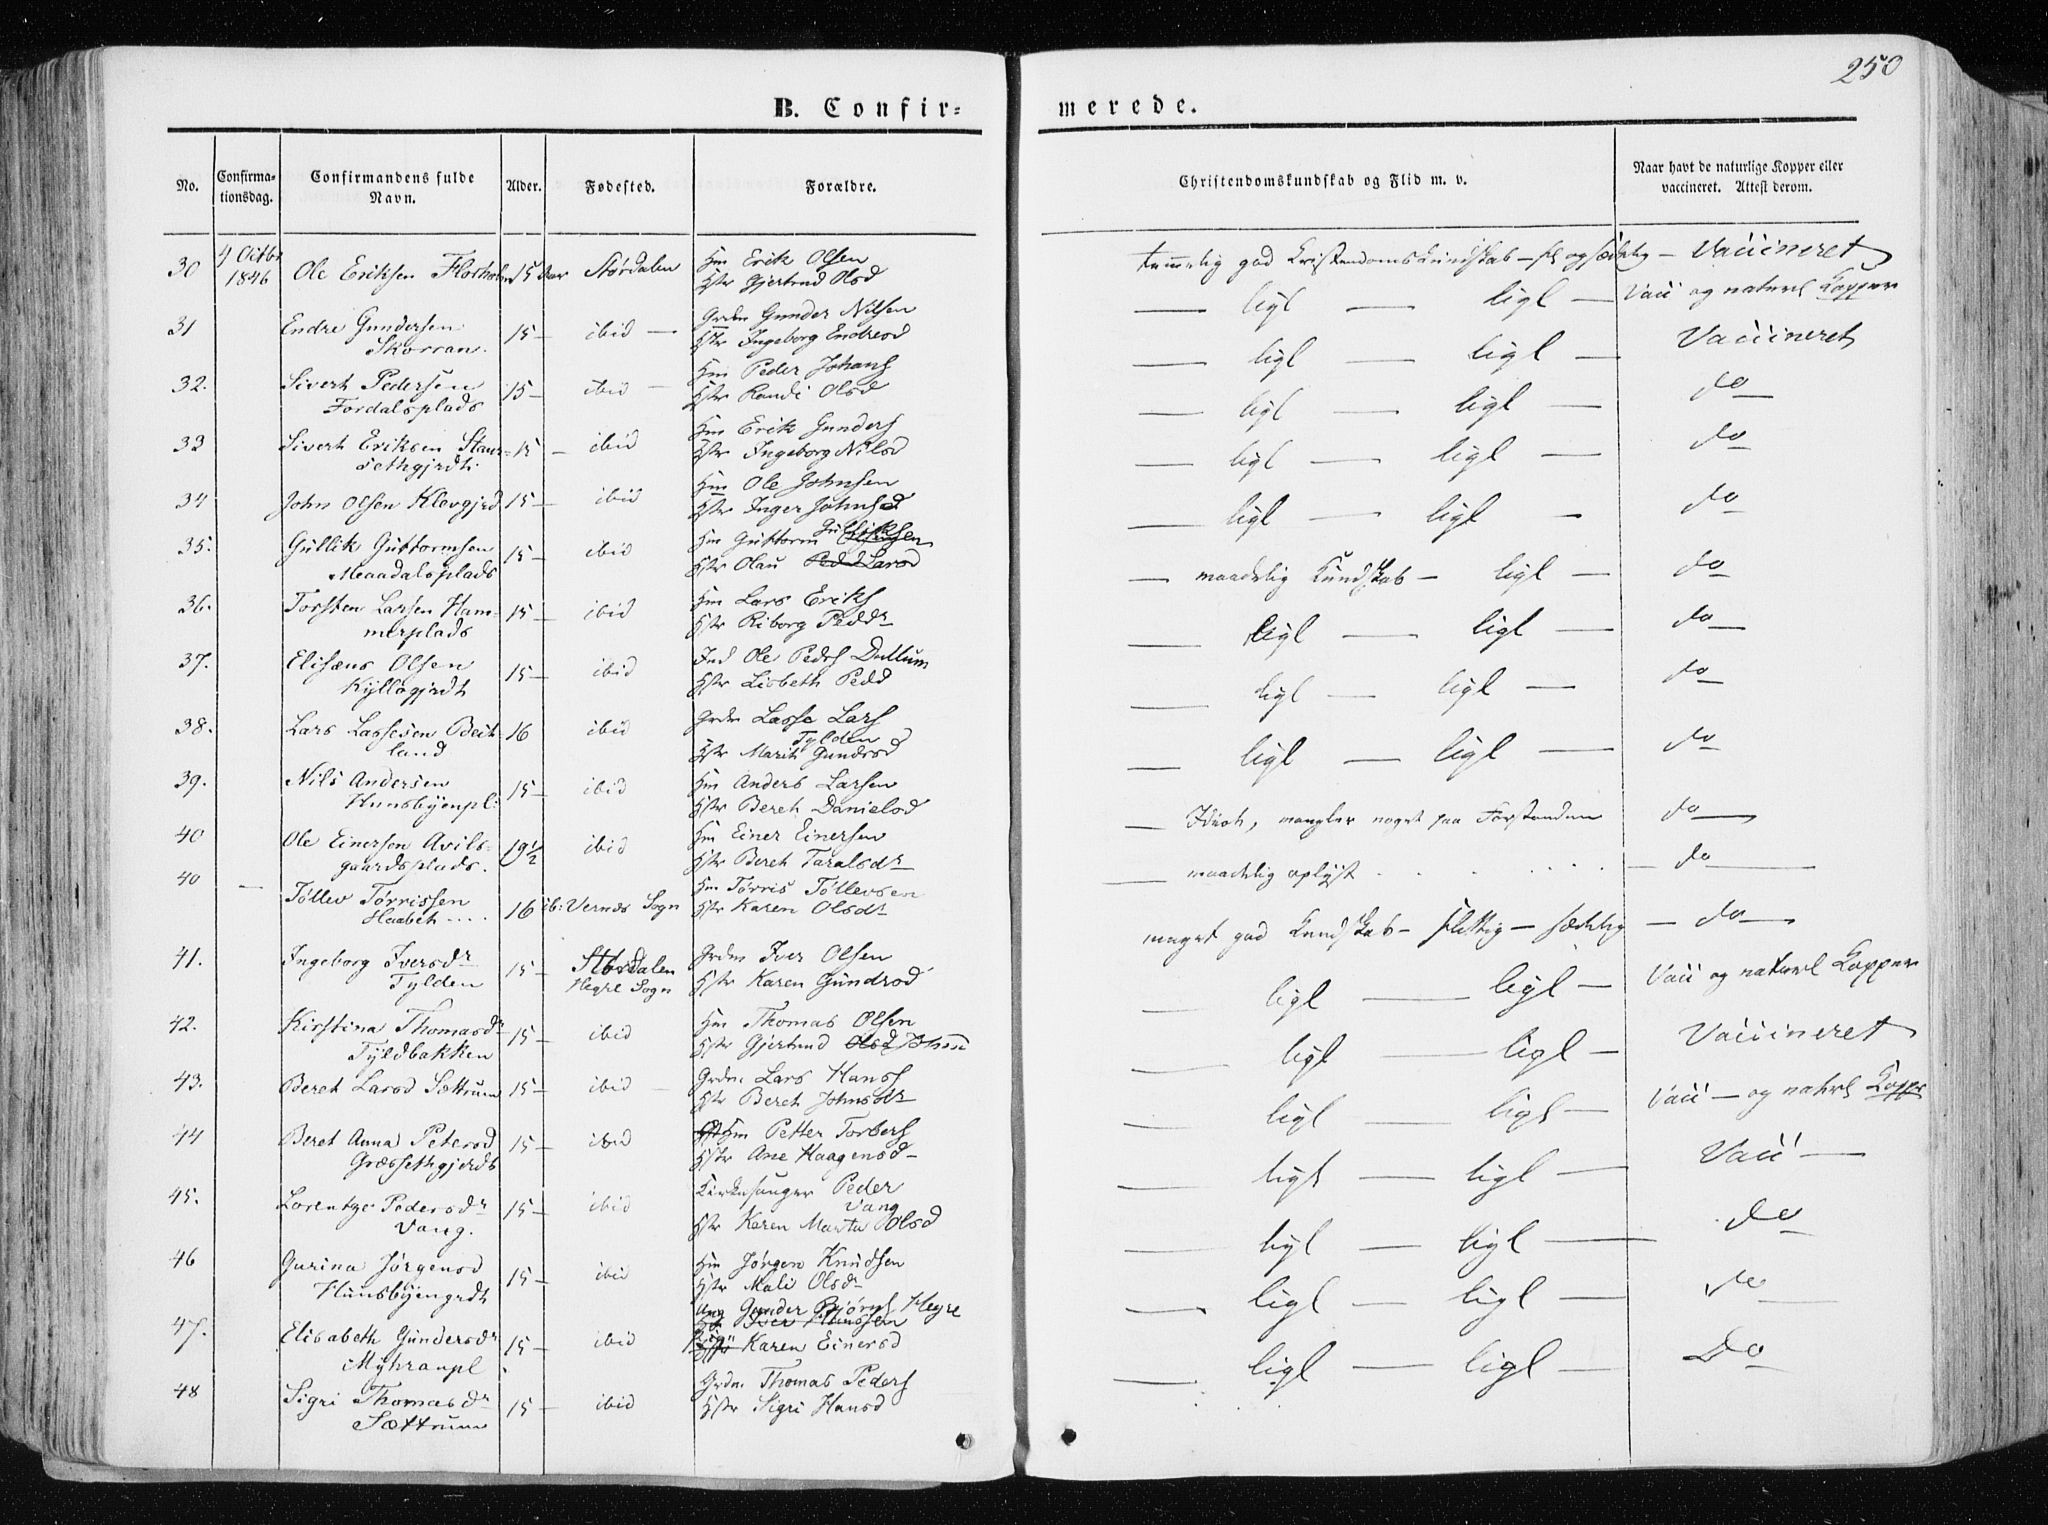 250
B. Confir=
merede.
No.
Confirma-
tionsdag.
Confirmandens fulde
Navn.
Alder.
Fødested.
Forældre.
Christendomskundskab og Flid m. v.
Naar havt de naturlige Kopper eller
vaccineret. Attest derom.
30 4 Octbr 1846 Ole Eriksen 15 Aar Størdalen Hm Erik Olsen
Hstr Gjertrud Olsd
temmelig god Kristendomskundskab - fl og sædelig - Vaccineret
31 Endre Gundersen 15 - ibid - Grdm Gunder Nilsen
Skorran. Hstr Ingeborg Endresd
ligl - ligl - Vacc og naturl Kopper
32. Sivert Pedersen 15 - ibid - Hm Peder Johans
Fordalsplads Hstr Randi Olsd
ligl - ligl - Vaccineret
33 Sivert Eriksen Staur= 15 - ibid Hm Erik Gunders
sethgjrdt. Hstr Ingeborg Nilsd
ligl - ligl - do
34 John Olsen Klevgjrd 15 - ibid Hm Ole Johnsen
Hstr Inger Johnsd
ligl - ligl - do
35. Gullik Guttormsen 15 - ibid Hm Guttorm Gulliksen
Maadalsplads Hstr Olau Larsd
ligl - ligl - do
36. Torsten Larsen Ham- 15 - ibid Hm Lars Eriks
merplads Hstr Riborg Peddr
maadelig Kundskab - ligl - do
37. Elisæus Olsen 15 - ibid Ind Ole Peders Dullum
Kyllogjrdt Hstr Lisbeth Pedd
ligl - ligl - do
38. Lars Lassesen Beit 16 ibid Grdm Lasse Lars
land Tylden
Hstr Marit Gundrsd
ligl - ligl - do
39. Nils Andersen 15 - ibid Hm Anders Larsen
Hunsbyenpl: Hstr Beret Danielsd
ligl - ligl - do
40 Ole Einersen Avils- 19½ ibid Hm Einer Einersen
gaardsplads. Hstr Beret Taralsdr
Idiot, mangler noget paa Forstanden do
40 - Tøllev Tørrissen 16 ib: Vernes Sogn Hm Tørris Tøllevsen
Haabet .... Hstr Karen Olsdr
maadelig oplyst . . . . . - do
41. Ingeborg Iversdr 15 - Størdalen Grdm Iver Olsen
Tylden Hegre Sogn Hstr Karen Gundrsd
meget god Kundskab - flittig - sædelig - do
42. Kirstina Thomasdr 15 - ibid Hm Thomas Olsen
Tyldbakken Hstr Gjertrud Olsd Johnsd
ligl - ligl - Vacc og naturl Kopper
43. Beret Larsd Sættrum 15 - ibid - Grdm Lars Hans
Hstr Beret Johnsdr
ligl - ligl - Vaccineret
44 Beret Anna Petersd 15 - ibid Hm Petter Torbers
Græssethgjerdt Hstr Ane Haagensd
ligl - ligl - Vacc - og naturl Kopper
45. Lorentze Pedersdr 15 - ibid Kirkesanger Peder
Vang. Vang
Hstr Karen Marta Olsd
ligl - ligl - Vacc -
46 Gurina Jørgensd 15 - ibid Hm Jørgen Knudsen
Hunsbyengrdt Hstr Mali Olsdr
ligl - ligl - do
47. Elisabeth Gundersdr 15 - ibid Ung Gunder Bjørns Hegre
Myhranpl Iver Hansen
Pige Karen Einersd
ligl - ligl - do
48 Sigri Thomasdr 15 - ibid Grdm Thomas Peders
Sættrum Hstr Sigri Hansd
ligl - ligl - Do